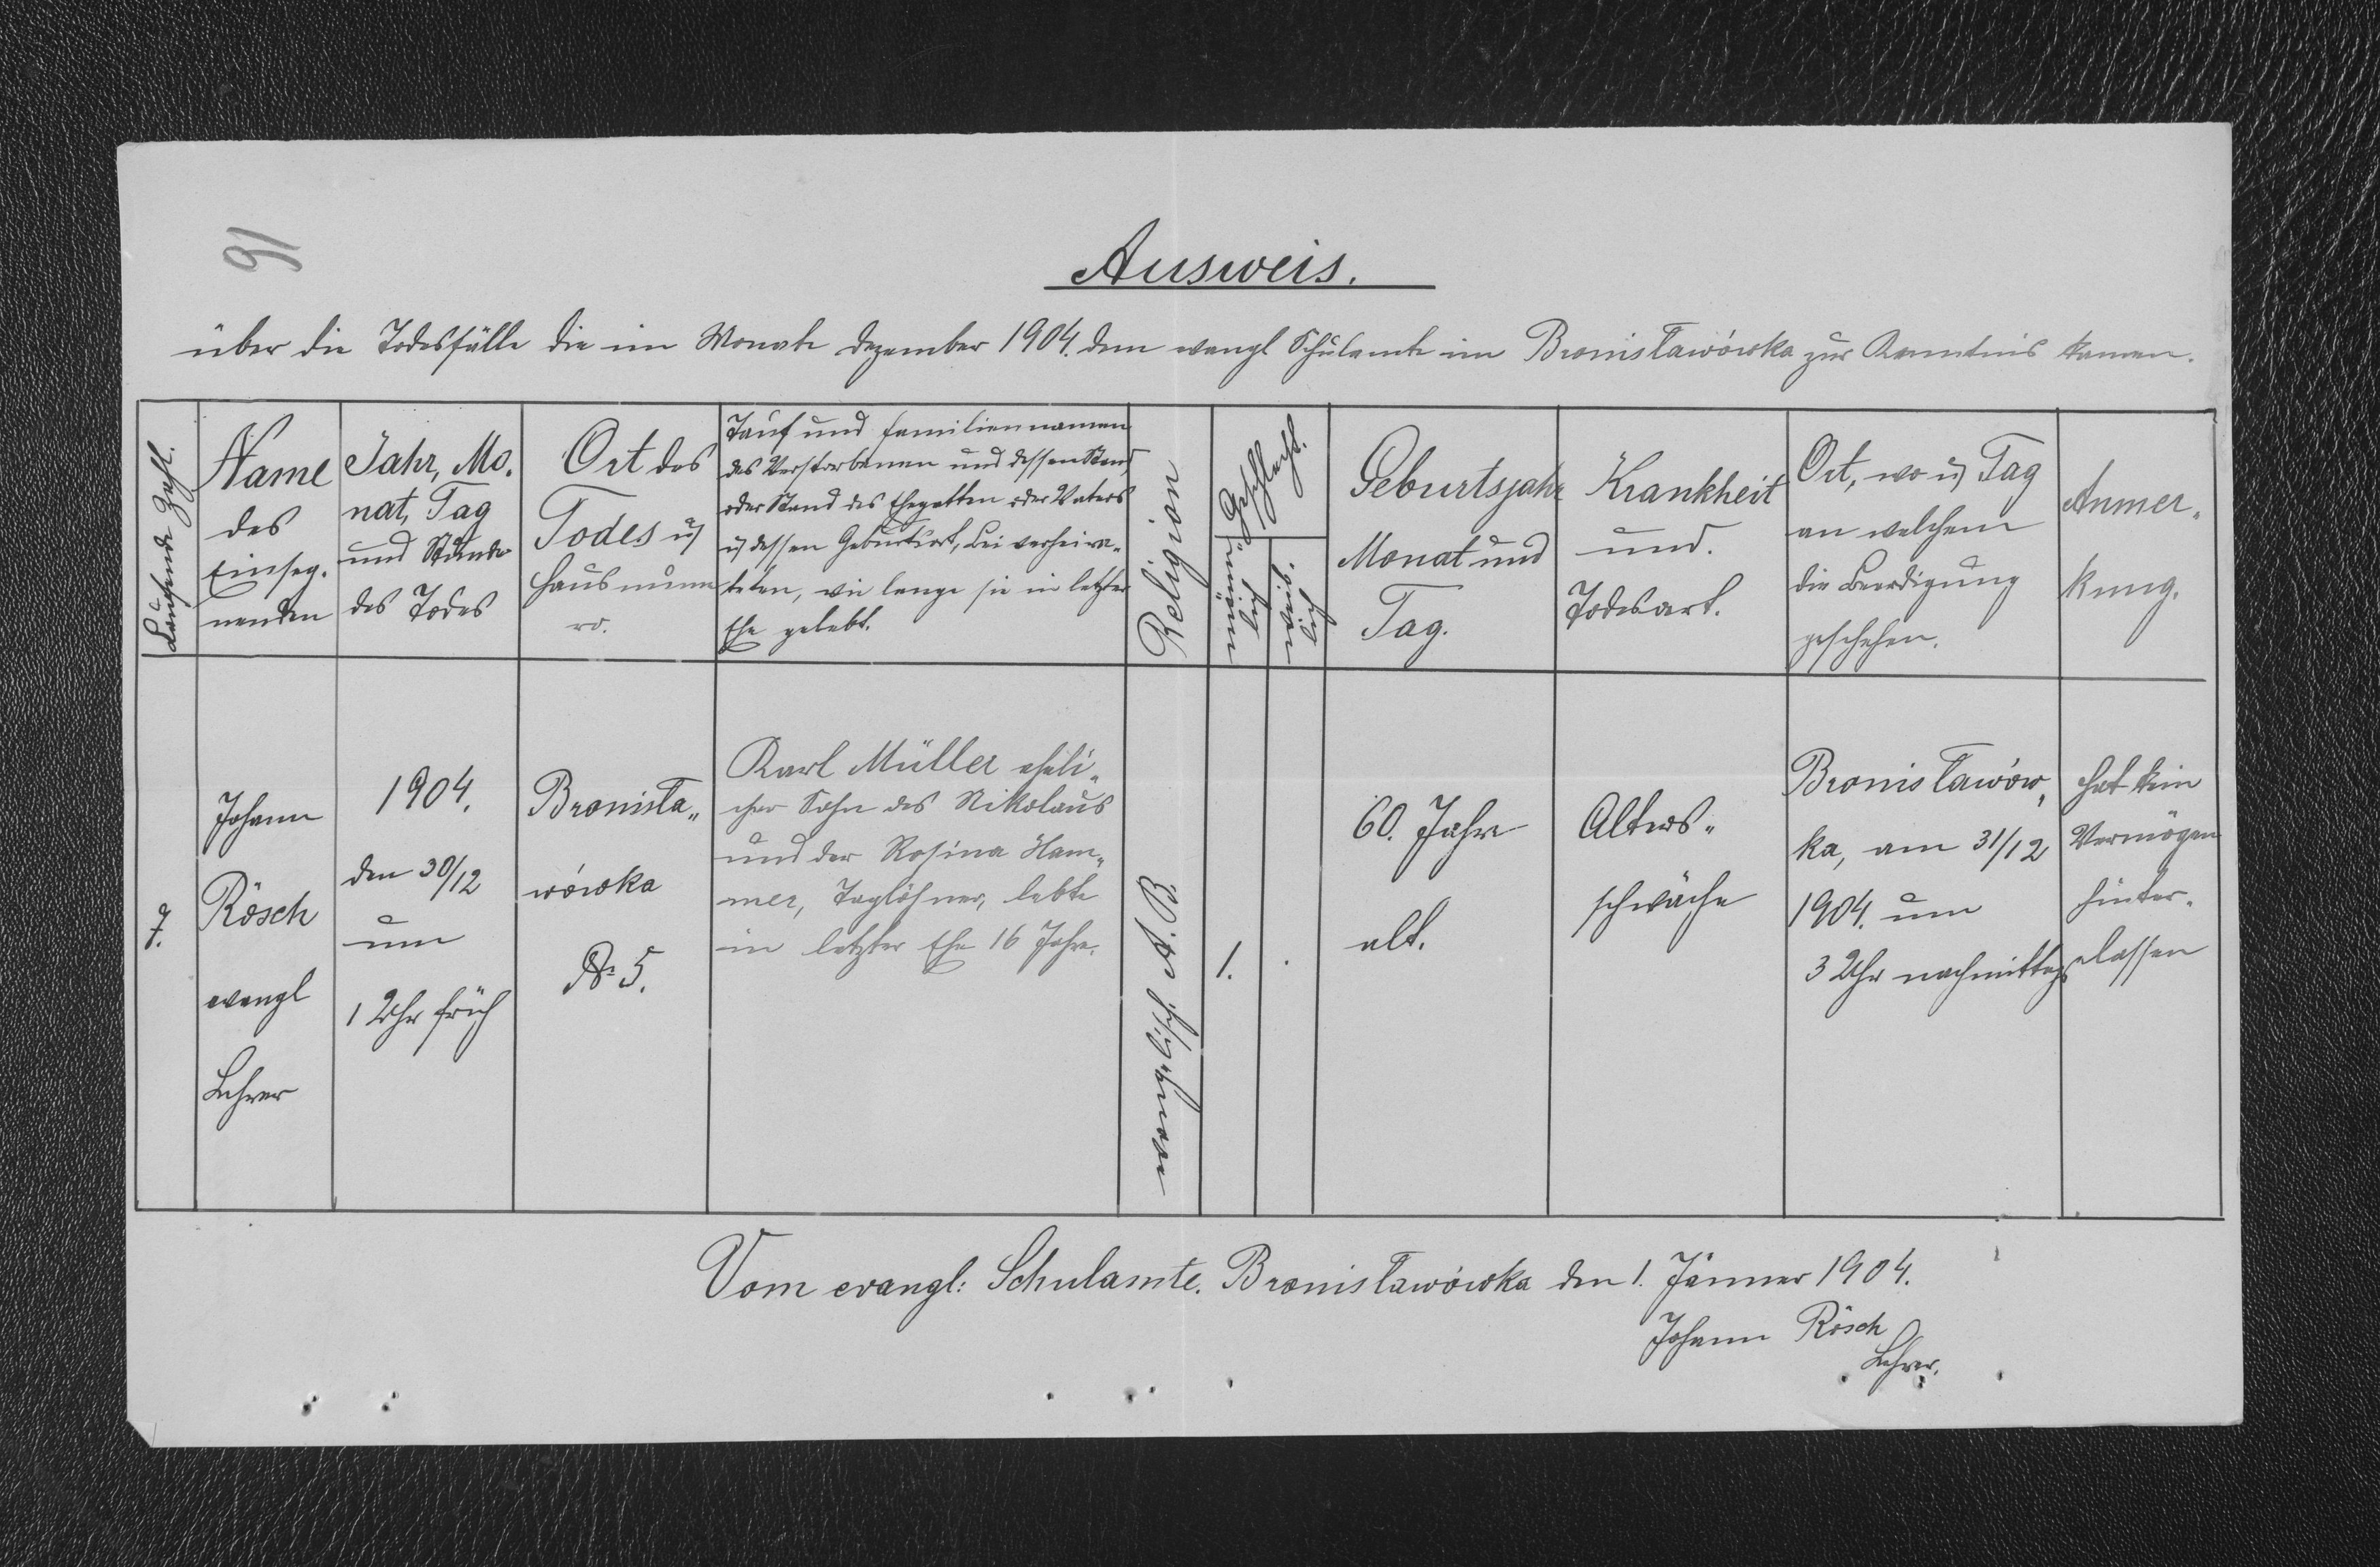 91
Ausweis.
über die Todesfälle die im Monate Dezember 1904. dem evangl Schulamte im Bronisławówka zur Kenntnis kamen.
Laufende Zahl.
Name
des
Einseg-
nenden
Jahr, Mo-
nat, Tag
und Stunde
des Todes
Ort des
Todes u
Hausnume
ro.
Tauf und Familiennamen
des Verstorbenen und dessen Stand
oder Stand des Ehegatten oder Vaters
u dessen Geburtsort, bei verheira-
teten, wie lange sie in letzter
Ehe gelebt.
Religion
Geschlecht.
männ-
lich
weib-
lich
Geburtsjahr
Monat und
Tag.
Krankheit
und.
Todesart.
Ort, wo u Tag
an welchem
die Beerdigung
geschehen.
Anmer-
kung.
7.
Johann
Rösch
evangl
Lehrer
1904.
den 30/12
um
1 Uhr früh
Bronisła-
wówka
No 5.
Karl Müller eheli-
cher Sohn des Nikolaus
und der Rosina Ham-
mer, Taglöhner, lebte
in letzter Ehe 16 Jahre.
evangelisch
1.
60. Jahre
alt.
Alters-
schwäche
Bronisławów-
ka, am 31/12
1904. um
3 Uhr nachmittags
hat kein
Vermögen
hinter-
lassen
Vom evangl: Schulamte. Bronisławówka den 1. Jänner 1904.
Johann Rösch
Lehrer.